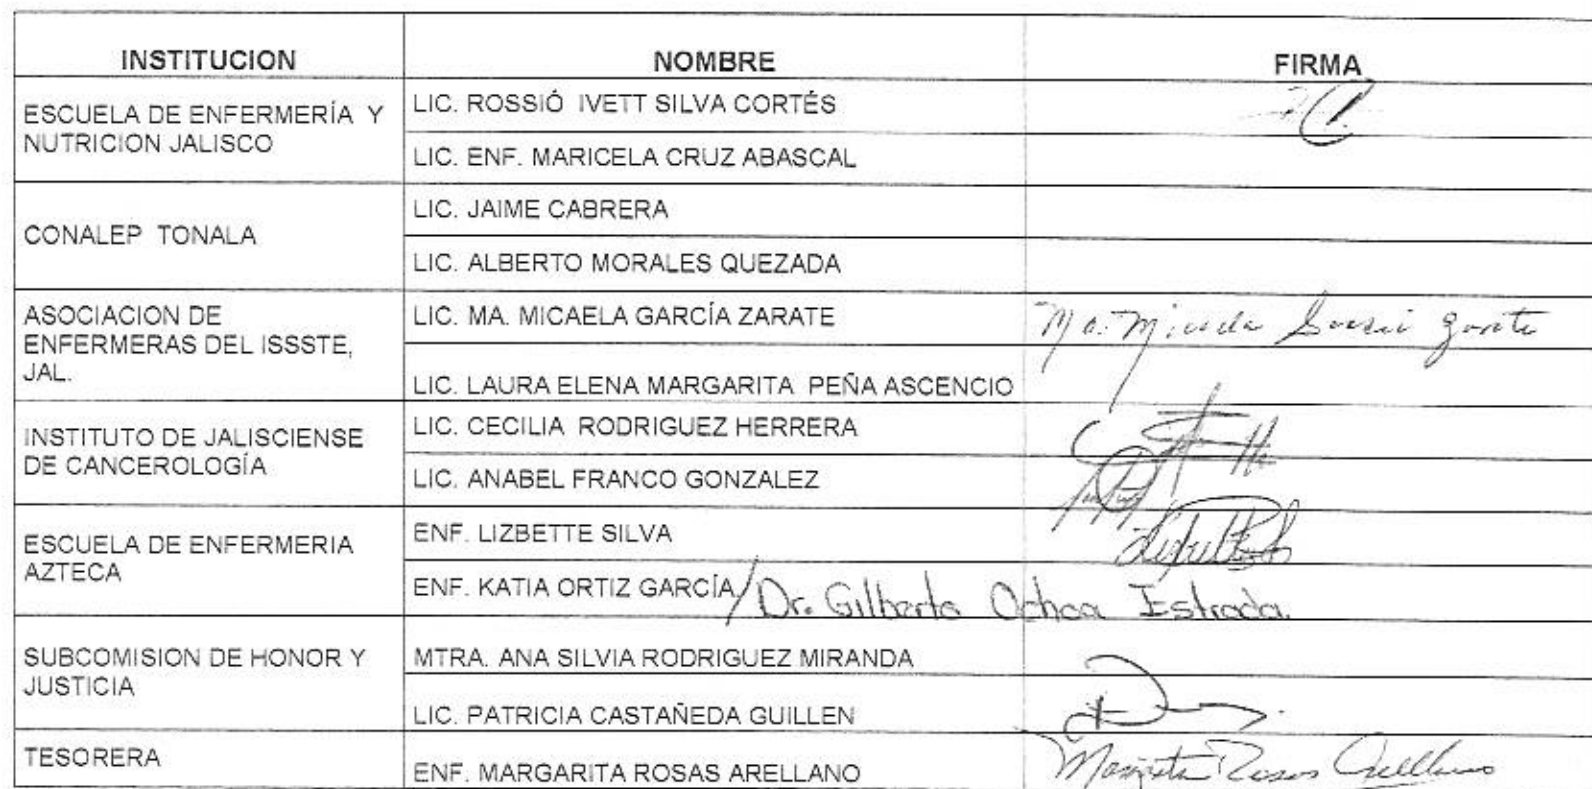 INSTITUCION NOMBRE FIRMA
ESCUELA DE ENFERMERÍA Y
NUTRICION JALISCO
LIC. ROSSIÓ IVETT SILVA CORTÉS
LIC. ENF. MARICELA CRUZ ABASCAL
CONALEP TONALA
LIC. JAIME CABRERA
LIC. ALBERTO MORALES QUEZADA
ASOCIACION DE
ENFERMERAS DEL ISSSTE,
JAL.
LIC. MA. MICAELA GARCÍA ZARATE
Ma. Micaela García Zarate
LIC. LAURA ELENA MARGARITA PEÑA ASCENCIO
INSTITUTO DE JALISCIENSE
DE CANCEROLOGÍA
LIC. CECILIA RODRIGUEZ HERRERA
LIC. ANABEL FRANCO GONZALEZ
ESCUELA DE ENFERMERIA
AZTECA
ENF. LIZBETTE SILVA
ENF. KATIA ORTIZ GARCÍA / Dr. Gilberto Ochoa Estrada.
SUBCOMISION DE HONOR Y
JUSTICIA
MTRA. ANA SILVIA RODRIGUEZ MIRANDA
LIC. PATRICIA CASTAÑEDA GUILLEN
TESORERA
ENF. MARGARITA ROSAS ARELLANO
Margarita Rosas Arellano